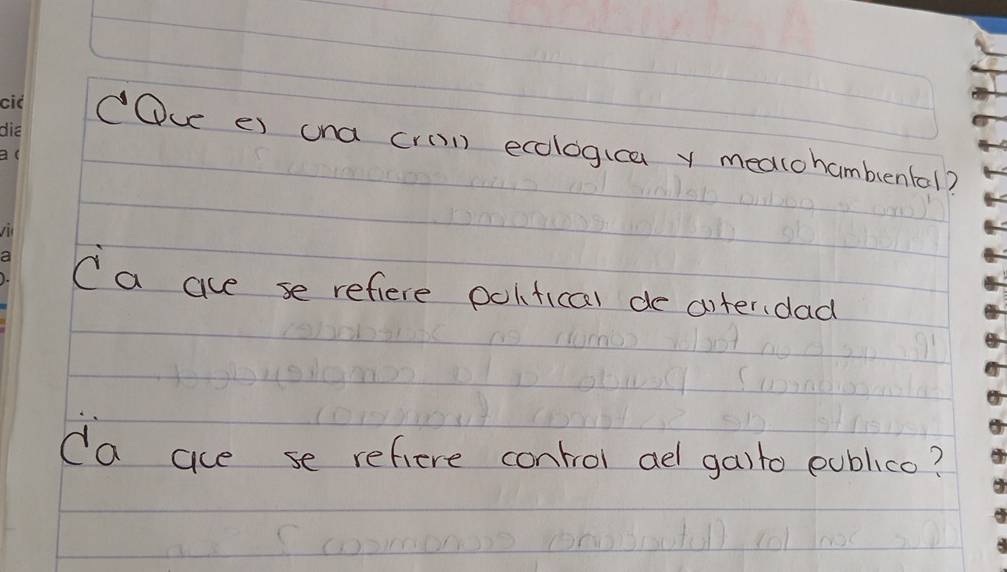 ¿Que es una crisis ecologica y mediohambiental?
¿a que se refiere politicas de asteridad
¿a que se refiere control del gasto publico?
ció
dia
a
vi
a